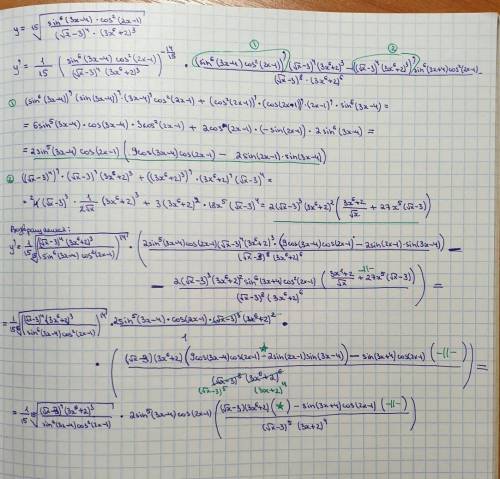 y = ¹⁵√( sin⁶(3x-4)·cos²(2x-1) / ((√x-3)⁴·(3x⁶+2)³) )
y' = 1/15 ( sin⁶(3x-4)cos²(2x-1) / ((√x-3)⁴(3x⁶+2)³) )^(-14/15) · ( (sin⁶(3x-4)cos²(2x-1))'(√x-3)⁴(3x⁶+2)³ - ((√x-3)⁴(3x⁶+2)³)' sin⁶(3x+4)cos²(2x-1) ) / ((√x-3)⁸·(3x⁶+2)⁶)
① (sin⁶(3x-4))'·(sin(3x-4))'·(3x-4)'cos²(2x-1) + (cos²(2x-1))'·(cos(2x-1))'·(2x-1)'·sin⁶(3x-4) =
= 6sin⁵(3x-4)·cos(3x-4)·3cos²(2x-1) + 2cos(2x-1)·(-sin(2x-1))·2sin⁶(3x-4) =
= 2sin⁵(3x-4)cos(2x-1)(9cos(3x-4)cos(2x-1) - 2sin(2x-1)·sin(3x-4))
② ((√x-3)⁴)'·(√x-3)'·(3x⁶+2)³ + ((3x⁶+2)³)'·(3x⁶+2)'(√x-3)⁴ =
= 4(√x-3)³·1/(2√x)·(3x⁶+2)³ + 3(3x⁶+2)²·18x⁵(√x-3)⁴ = 2(√x-3)³(3x⁶+2)²((3x⁶+2)/√x + 27x⁵(√x-3))
Возвращаемся:
y' = 1/15 ¹⁵√( ((√x-3)⁴(3x⁶+2)³ / (sin⁶(3x-4)cos²(2x-1)))¹⁴ ) · ( 2sin⁵(3x-4)cos(2x-1)(√x-3)⁴(3x⁶+2)³·(9cos(3x-4)cos(2x-1) - 2sin(2x-1)·sin(3x-4)) / ((√x-3)⁸(3x⁶+2)⁶) -
- 2(√x-3)³(3x⁶+2)²sin⁶(3x+4)cos²(2x-1)((3x⁶+2)/√x -||- + 27x⁵(√x-3)) / ((√x-3)⁸(3x⁶+2)⁶) ) =
= 1/15 ¹⁵√( ((√x-3)⁴(3x⁶+2)³ / (sin⁶(3x-4)cos²(2x-1)))¹⁴ ) · 2sin⁵(3x-4)·cos(2x-1)·(√x-3)³(3x⁶+2)² ·
1
· ( ((√x-3)(3x⁶+2)(9cos(3x-4)cos(2x-1) ★ - 2sin(2x-1)sin(3x-4)) - sin(3x+4)cos(2x-1)(-||-)) / ((√x-3)⁸(3x⁶+2)⁶) ) =
(√x-3)⁵ (3x+2)⁴
= 1/15 ¹⁵√( ((√x-3)⁴(3x⁶+2)³ / (sin⁶(3x-4)cos²(2x-1)))¹⁴ ) · 2sin⁵(3x-4)cos(2x-1)( ((√x-3)(3x⁶+2)(★) - sin(3x+4)cos(2x-1)(-||-)) / ((√x-3)⁵(3x+2)⁴) )